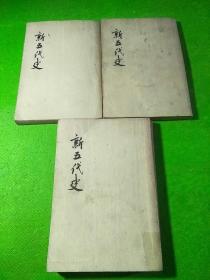 新五代史
新五代史
新五代史